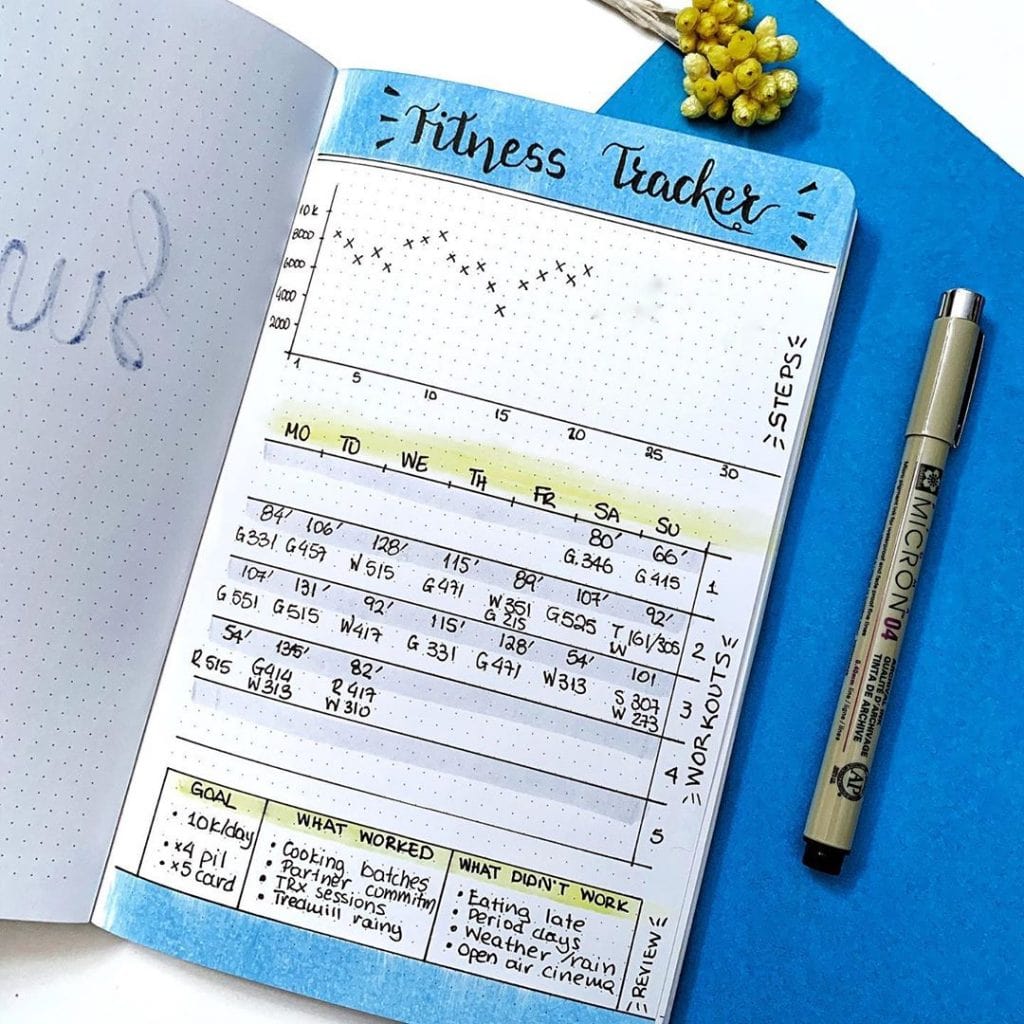 Fitness Tracker
10K
8000
6000
4000
2000
1 5 10 15 20 25 30
STEPS
MO TO WE TH FR SA SU
80' 66'
G.346 G415
1
84' 106' 128' 115' 89' 107' 92'
G331 G457 W515 G471 W351 G525 T 161/305
G 215 W
2
107' 131' 92' 115' 128' 54' 101
G551 G515 W417 G.331 G471 W313 S 307
W 273
3
54' 135' 82'
R515 G414 R417
W313 W310
4
5
WORKOUTS
GOAL
• 10K/day
• x4 pil
• x5 card
WHAT WORKED
• Cooking batches
• Partner commitm
• TRX sessions
• Tredmill rainy
WHAT DIDN'T WORK
• Eating late
• Period days
• Weather/rain
• Open air cinema
REVIEW
MICRON 04
ARCHIVAL INK
QUALITÉ D'ARCHIVAGE
TINTA DE ARCHIVE
AP